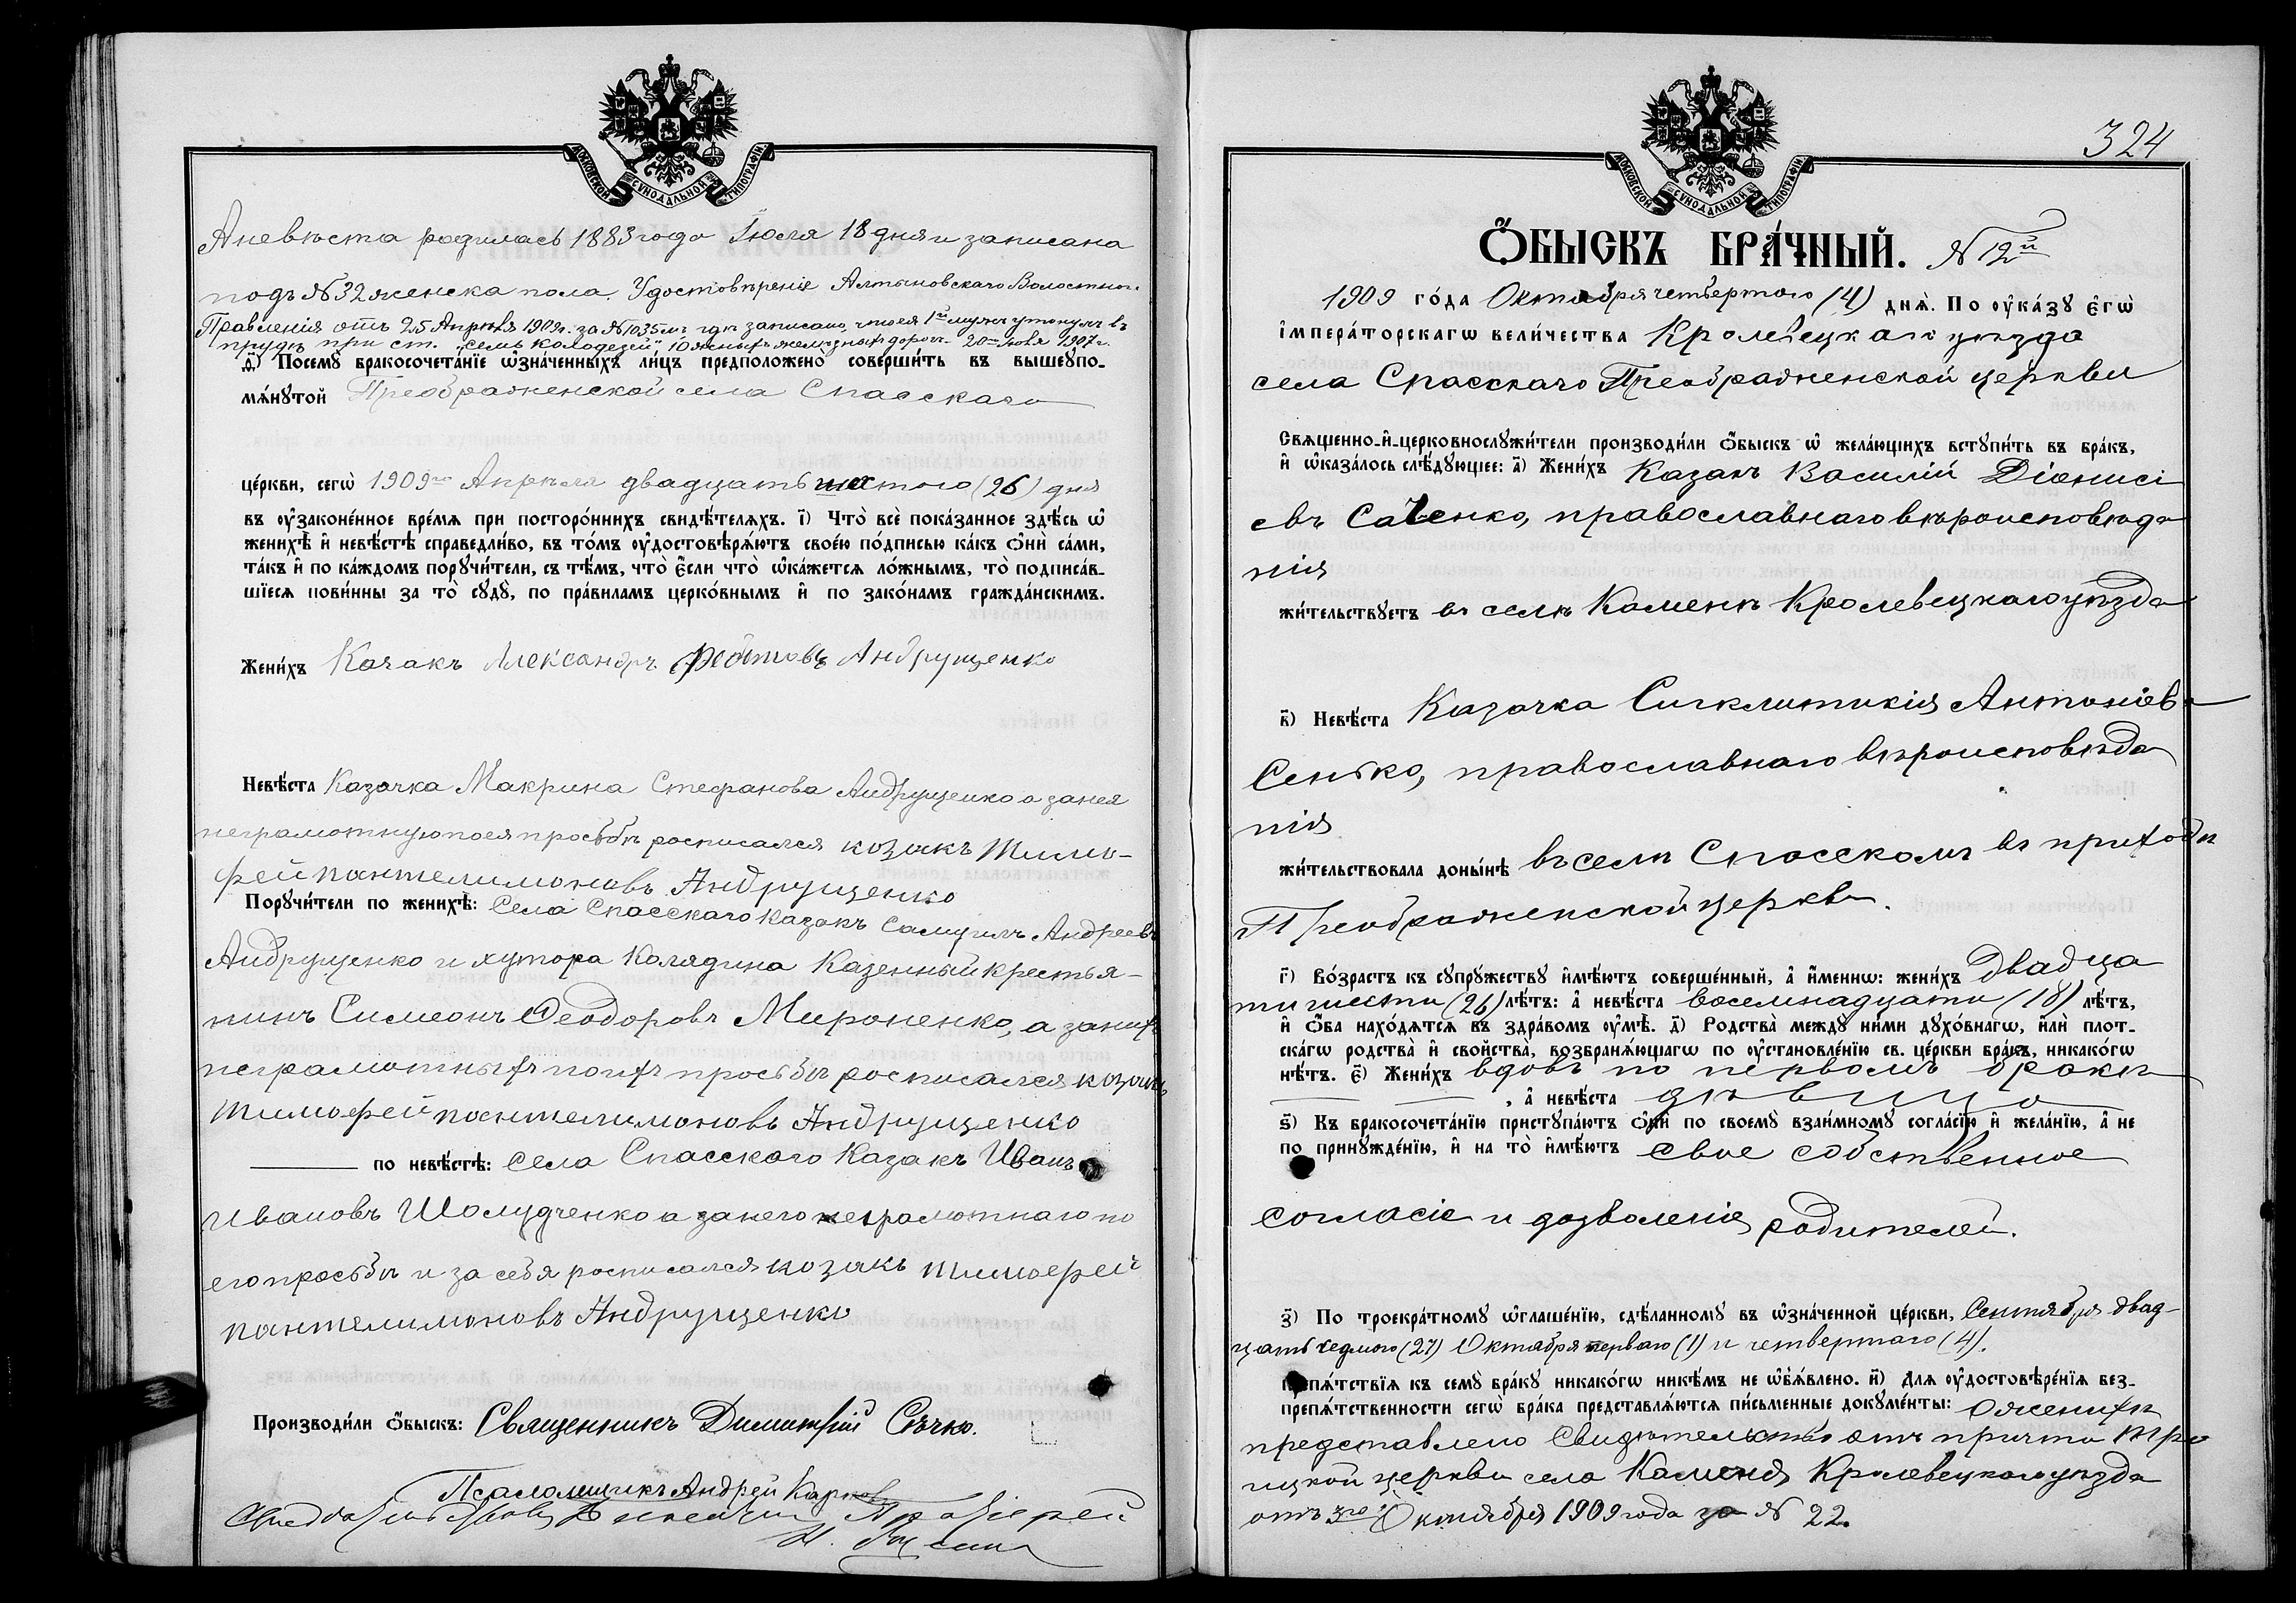 МОСКОВСКОЙ СУНОДАЛЬНОЙ ТИПОГРАФIИ.
А невѣста родилась 1883 года Іюля 18 дня и записана
подъ № 32 женска пола. Удостовѣреніе Алтыновскаго Волостног.
Правленія отъ 25 Апрѣля 1909 г. за № 1035 мъ гдѣ записано, что ея 1й мужъ утонулъ въ
прудѣ при ст. „Семь Колодезей" Южныхъ желѣзныхъ дорогъ 20 Іюня 1907 г.
д҃) Посемꙋ бракосочета́нїе ѡ҆зна́ченныхъ ли́цъ предположено̀ соверши́ть въ вышеꙋпо-
мѧ́нꙋтой Преображенской села Спасскаго
це́ркви, сегѡ̀ 1909го Апрѣля двадцать шестого (26) дня
въ оу҆зако́ненное вре́мѧ при посторо́ннихъ свидѣ́телѧхъ. і҃) Что̀ всѐ пока́занное здѣ́сь ѡ҆
женихѣ̀ и҆ невѣ́стѣ справедли́во, въ то́мъ оу҆достовѣрѧ́ютъ свое́ю по́дписью ка́къ ѻ҆нѝ са́ми,
та́къ и҆ по ка́ждомъ порꙋчи́тели, съ тѣ́мъ, что̀ є҆́сли что̀ ѡ҆ка́жетсѧ ло́жнымъ, то̀ подписа́в-
шїесѧ пови́нны за то̀ сꙋдꙋ̀, по пра́виламъ церко́внымъ и҆ по зако́намъ гражда́нскимъ.
Жени́хъ Козакъ Александръ Андрущенко
Невѣ́ста Казачка Макрина Стефанова Андрущенко а за нея
неграмотную по ея просьбѣ росписался козакъ Тимо-
фей Пантелимоновъ Андрущенко
Порꙋчи́тели по женихѣ̀: Села Спасскаго казакъ Самуилъ Андреевъ
Андрущенко и хутора Колядина Казенный крестья-
нинъ Симеонъ Ѳеодоровъ Мироненко, а за нихъ
неграмотныхъ по ихъ просьбѣ росписался козакъ
Тимофей Пантелимоновъ Андрущенко
по невѣ́стѣ: Села Спасскаго Казакъ Иванъ
Ивановъ Шолудченко а за него неграмотнаго по
его просьбѣ и за себя росписался козакъ Тимофей
Пантелимоновъ Андрущенко
Производи́ли ѻ҆́быскъ: Священникъ Димитрій Сѣчко.
Псаломщикъ Андрей Карпов
324
МОСКОВСКОЙ СУНОДАЛЬНОЙ ТИПОГРАФIИ.
Ѻ҆́БЫСКЪ БРА́ЧНЫЙ. № 12й
1909 го́да Октября четвертого (4) днѧ̀. По оу҆ка́зꙋ є҆гѡ̀
і҆мпера́торскагѡ вели́чества Кролевецкаго уѣзда
села Спасскаго Преображенской церкви
Свѧще́нно-и҆-церковнослꙋжи́тели производи́ли ѻ҆́быскъ ѡ҆ жела́ющихъ встꙋпи́ть въ бра́къ,
и҆ ѡ҆каза́лось слѣ́дꙋющее: а҃) Жени́хъ Казакъ Василій Діонисі
евъ Саченко, православнаго вѣроисповѣда
нія
жи́тельствꙋетъ въ селѣ Каменѣ Кролевецкаго уѣзда
в҃) Невѣ́ста Казачка Сигклитикія Антоніева
Сенько, православнаго вѣроисповѣда
нія
жи́тельствовала доны́нѣ въ селѣ Спасскомъ въ приходѣ
Преображенской церкви.
г҃) Во́зрастъ къ сꙋпрꙋ́жествꙋ и҆мѣ́ютъ соверше́нный, а҆ и҆́меннѡ: жени́хъ двадца
ти шести (26) лѣ́тъ: а҆ невѣ́ста восемнадцати (18) лѣ́тъ,
и҆ ѻ҆́ба нахо́дѧтсѧ въ здра́вомъ оу҆мѣ̀. д҃) Родства̀ междꙋ̀ ни́ми дꙋхо́внагѡ, и҆лѝ плот-
ска́гѡ родства̀ и҆ сво́йства, возбранѧ́ющагѡ по оу҆становле́нїю св. це́ркви бра́къ, никако́гѡ
нѣ́тъ. є҃) Жени́хъ вдовъ по первомъ бракѣ
, а҆ невѣ́ста дѣвица
ѕ҃) Къ бракосочета́нїю пристꙋпа́ютъ ѻ҆нѝ по своемꙋ̀ взаи́мномꙋ согла́сїю и҆ жела́нїю, а҆ не
по принꙋжде́нїю, и҆ на то̀ и҆мѣ́ютъ свое собственное
согласіе и дозволеніе родителей.
з҃) По троекра́тномꙋ ѡ҆глаше́нїю, сдѣ́ланномꙋ въ ѡ҆зна́ченной це́ркви, Сентября двад-
цать седмого (27) Октября перваго (1) и четвертаго (4).
препѧ́тствїѧ къ семꙋ̀ бра́кꙋ никако́гѡ никѣ́мъ не ѡ҆б̾ѧ́влено. и҃) Длѧ оу҆достовѣре́нїѧ без-
препѧ́тственности сегѡ̀ бра́ка представлѧ́ютсѧ пи́сьменные докꙋме́нты: О женихѣ
представлено Свидѣтельство отъ причта Тро
ицкой церкви села Каменя Кролевецкаго уѣзда
отъ 3го Октября 1909 года за № 22.